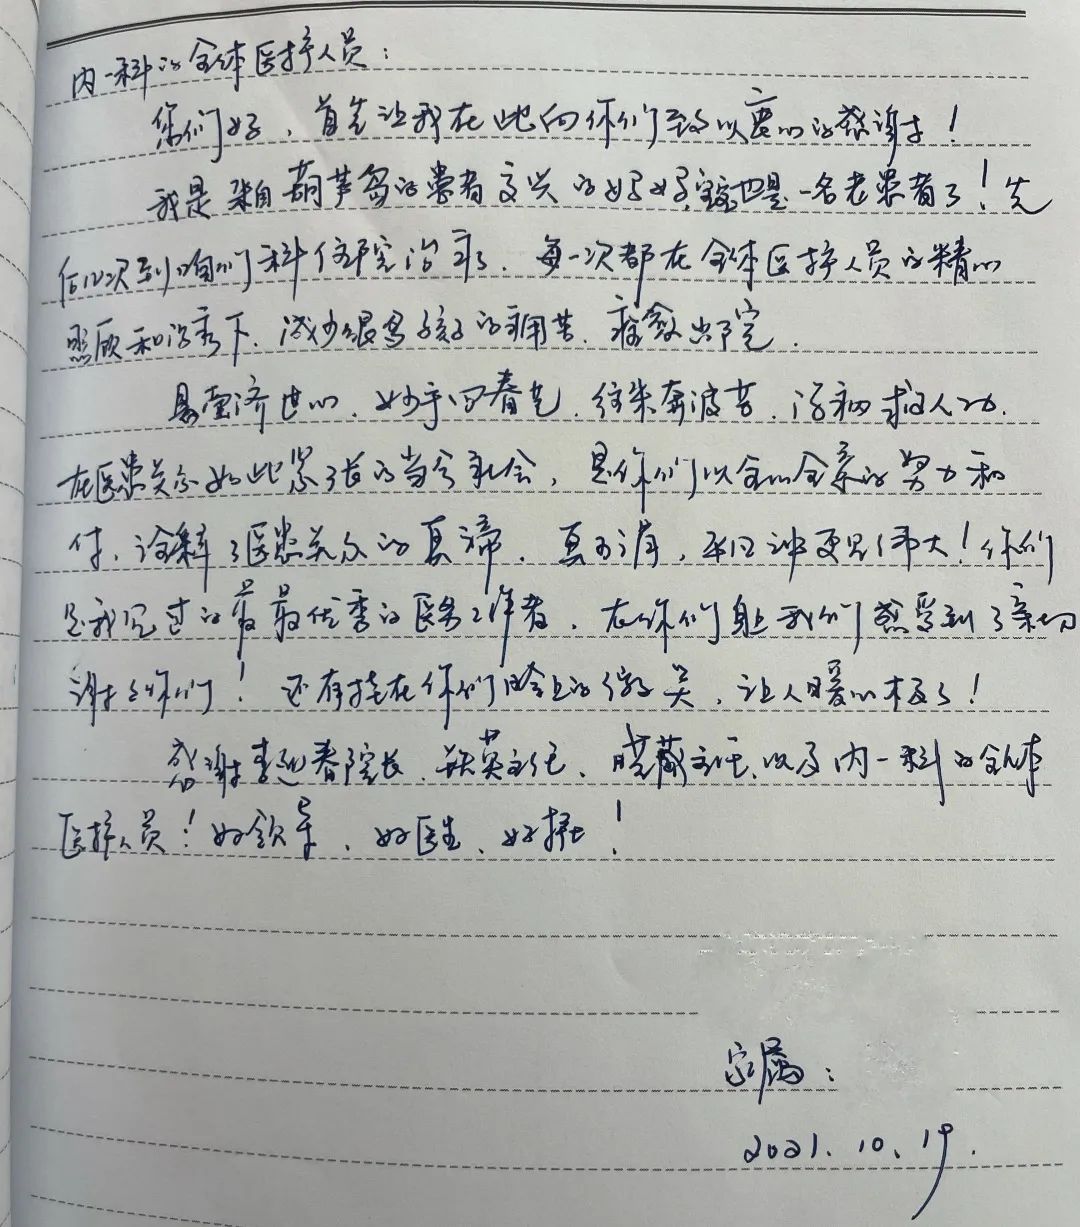 内一科的全体医护人员：
您们好，首先让我在此向你们致以衷心的感谢！
我是来自葫芦岛的患者 的妈妈，也是一名老患者了！先
后12次到咱们科住院治疗，每一次都在全体医护人员的精心
照顾和治疗下，减少很多孩子的病苦，痊愈出院．
悬壶济世心，妙手回春艺，往来奔波苦，治病救人功．
在医患关系如此紧张的当今社会，是你们以全心全意的努力和
付，诠释了医患关系的真谛，真可谓，平凡之中更见伟大！你们
是我见过的最最优秀的医务工作者，在你们身上我们感受到了亲切
谢谢你们！还有挂在你们脸上的微笑，让人暖心极了！
感谢李迎春院长、 英主任、晓薇主任、以及内一科的全体
医护人员！好领导、好医生、好护士！
家属：
2021．10．19．